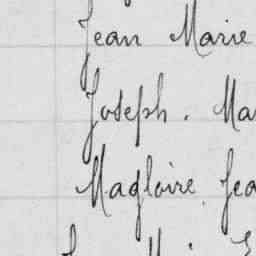 Jean Marie
Joseph. Ma
Magloire Jea